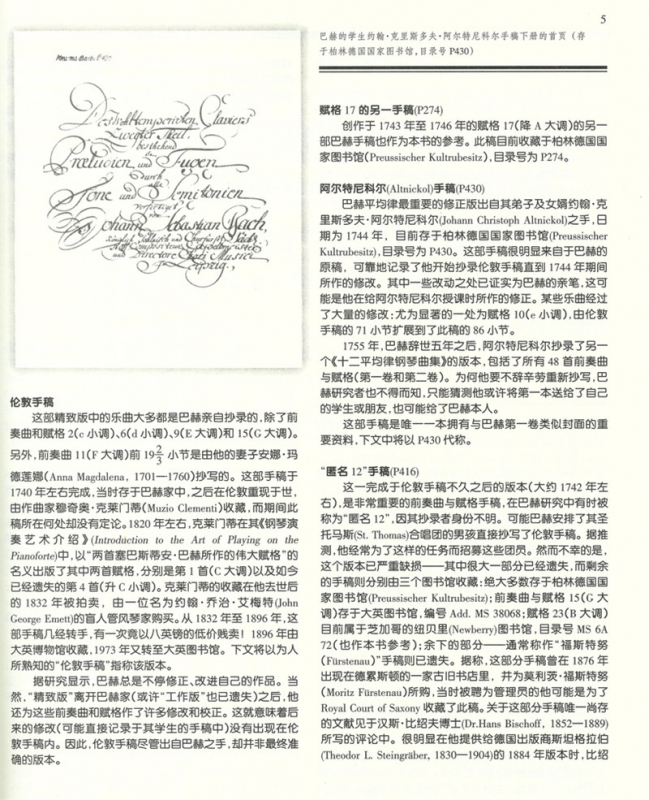 5
巴赫的学生约翰·克里斯多夫·阿尔特尼科尔手稿下册的首页（存
于柏林德国国家图书馆,目录号 P430）
Des Wohltemperirten Claviers
Zweyter Theil,
bestehend
in
Præludien und Fugen
durch
alle
Tone und Semitonien
verfertiget
von
Johann Sebastian Bach,
Leipzig.
伦敦手稿
这部精致版中的乐曲大多都是巴赫亲自抄录的,除了前
奏曲和赋格 2(c 小调)、6(d 小调)、9(E 大调)和 15(G 大调)。
另外,前奏曲 11(F 大调)前 19 2/3 小节是由他的妻子安娜·玛
德莲娜(Anna Magdalena, 1701—1760)抄写的。这部手稿于
1740 年左右完成,当时存于巴赫家中,之后在伦敦重现于世,
由作曲家穆奇奥·克莱门蒂(Muzio Clementi)收藏,而期间此
稿所在何处却没有定论。1820 年左右,克莱门蒂在其《钢琴演
奏艺术介绍》(Introduction to the Art of Playing on the
Pianoforte)中,以“两首塞巴斯蒂安·巴赫所作的伟大赋格”的
名义出版了其中两首赋格,分别是第 1 首(C 大调)以及如今
已经遗失的第 4 首(升 C 小调)。克莱门蒂的收藏在他去世后
的 1832 年被拍卖，由一位名为约翰·乔治·艾梅特(John
George Emett)的盲人管风琴家购买。从 1832 年至 1896 年,这
部手稿几经转手,有一次竟以八英镑的低价贱卖！1896年由
大英博物馆收藏,1973 年又转至大英图书馆。下文将以为人
所熟知的“伦敦手稿”指称该版本。
据研究显示,巴赫总是不停修正、改进自己的作品。当
然,“精致版”离开巴赫家(或许“工作版”也已遗失)之后,他
还为这些前奏曲和赋格作了许多修改和校正。这就意味着后
来的修改(可能直接记录于其学生的手稿中)没有出现在伦
敦手稿内。因此,伦敦手稿尽管出自巴赫之手,却并非最终准
确的版本。
赋格 17 的另一手稿(P274)
创作于 1743 年至 1746 年的赋格 17(降 A 大调)的另一
部巴赫手稿也作为本书的参考。此稿目前收藏于柏林德国国
家图书馆(Preussischer Kultrubesitz),目录号为 P274。
阿尔特尼科尔(Altnickol)手稿(P430)
巴赫平均律最重要的修正版出自其弟子及女婿约翰·克
里斯多夫·阿尔特尼科尔(Johann Christoph Altnickol)之手,日
期为 1744 年，目前存于柏林德国国家图书馆(Preussischer
Kultrubesitz),目录号为 P430。这部手稿很明显来自于巴赫的
原稿，可靠地记录了他开始抄录伦敦手稿直到 1744 年期间
所作的修改。其中一些改动之处已证实为巴赫的亲笔,这可
能是他在给阿尔特尼科尔授课时所作的修正。某些乐曲经过
了大量的修改:尤为显著的一处为赋格 10(e 小调),由伦敦
手稿的 71 小节扩展到了此稿的 86 小节。
1755 年,巴赫辞世五年之后,阿尔特尼科尔抄录了另一
个《十二平均律钢琴曲集》的版本,包括了所有 48 首前奏曲
与赋格(第一卷和第二卷)。为何他要不辞辛劳重新抄写,巴
赫研究者也不得而知,只能猜测他或许将第一本送给了自己
的学生或朋友,也可能给了巴赫本人。
这部手稿是唯一一本拥有与巴赫第一卷类似封面的重
要资料,下文中将以 P430 代称。
“匿名 12”手稿(P416)
这一完成于伦敦手稿不久之后的版本(大约 1742 年左
右),是非常重要的前奏曲与赋格手稿,在巴赫研究中有时被
称为“匿名 12”,因其抄录者身份不明。可能巴赫安排了其圣
托马斯(St. Thomas)合唱团的男孩直接抄写了伦敦手稿。据推
测,他经常为了这样的任务而招募这些团员。然而不幸的是,
这个版本已严重缺损——其中很大一部分已经遗失,而剩余
的手稿则分别由三个图书馆收藏:绝大多数存于柏林德国国
家图书馆(Preussischer Kultrubesitz);前奏曲与赋格 15(G 大
调)存于大英图书馆,编号 Add. MS 38068;赋格 23(B 大调)
目前属于芝加哥的纽贝里(Newberry)图书馆,目录号 MS 6A
72(也作本书参考);余下的部分——通常称作“福斯特努
(Fürstenau)”手稿则已遗失。据称,这部分手稿曾在 1876 年
出现在德累斯顿的一家古旧书店里，并为莫利茨·福斯特努
(Moritz Fürstenau)所购,当时被聘为管理员的他可能是为了
Royal Court of Saxony 收藏了此稿。关于这部分手稿唯一尚存
的文献见于汉斯·比绍夫博士(Dr.Hans Bischoff, 1852—1889)
所写的评论中。很明显在他提供给德国出版商斯坦格拉伯
(Theodor L. Steingräber, 1830—1904)的 1884 年版本时,比绍